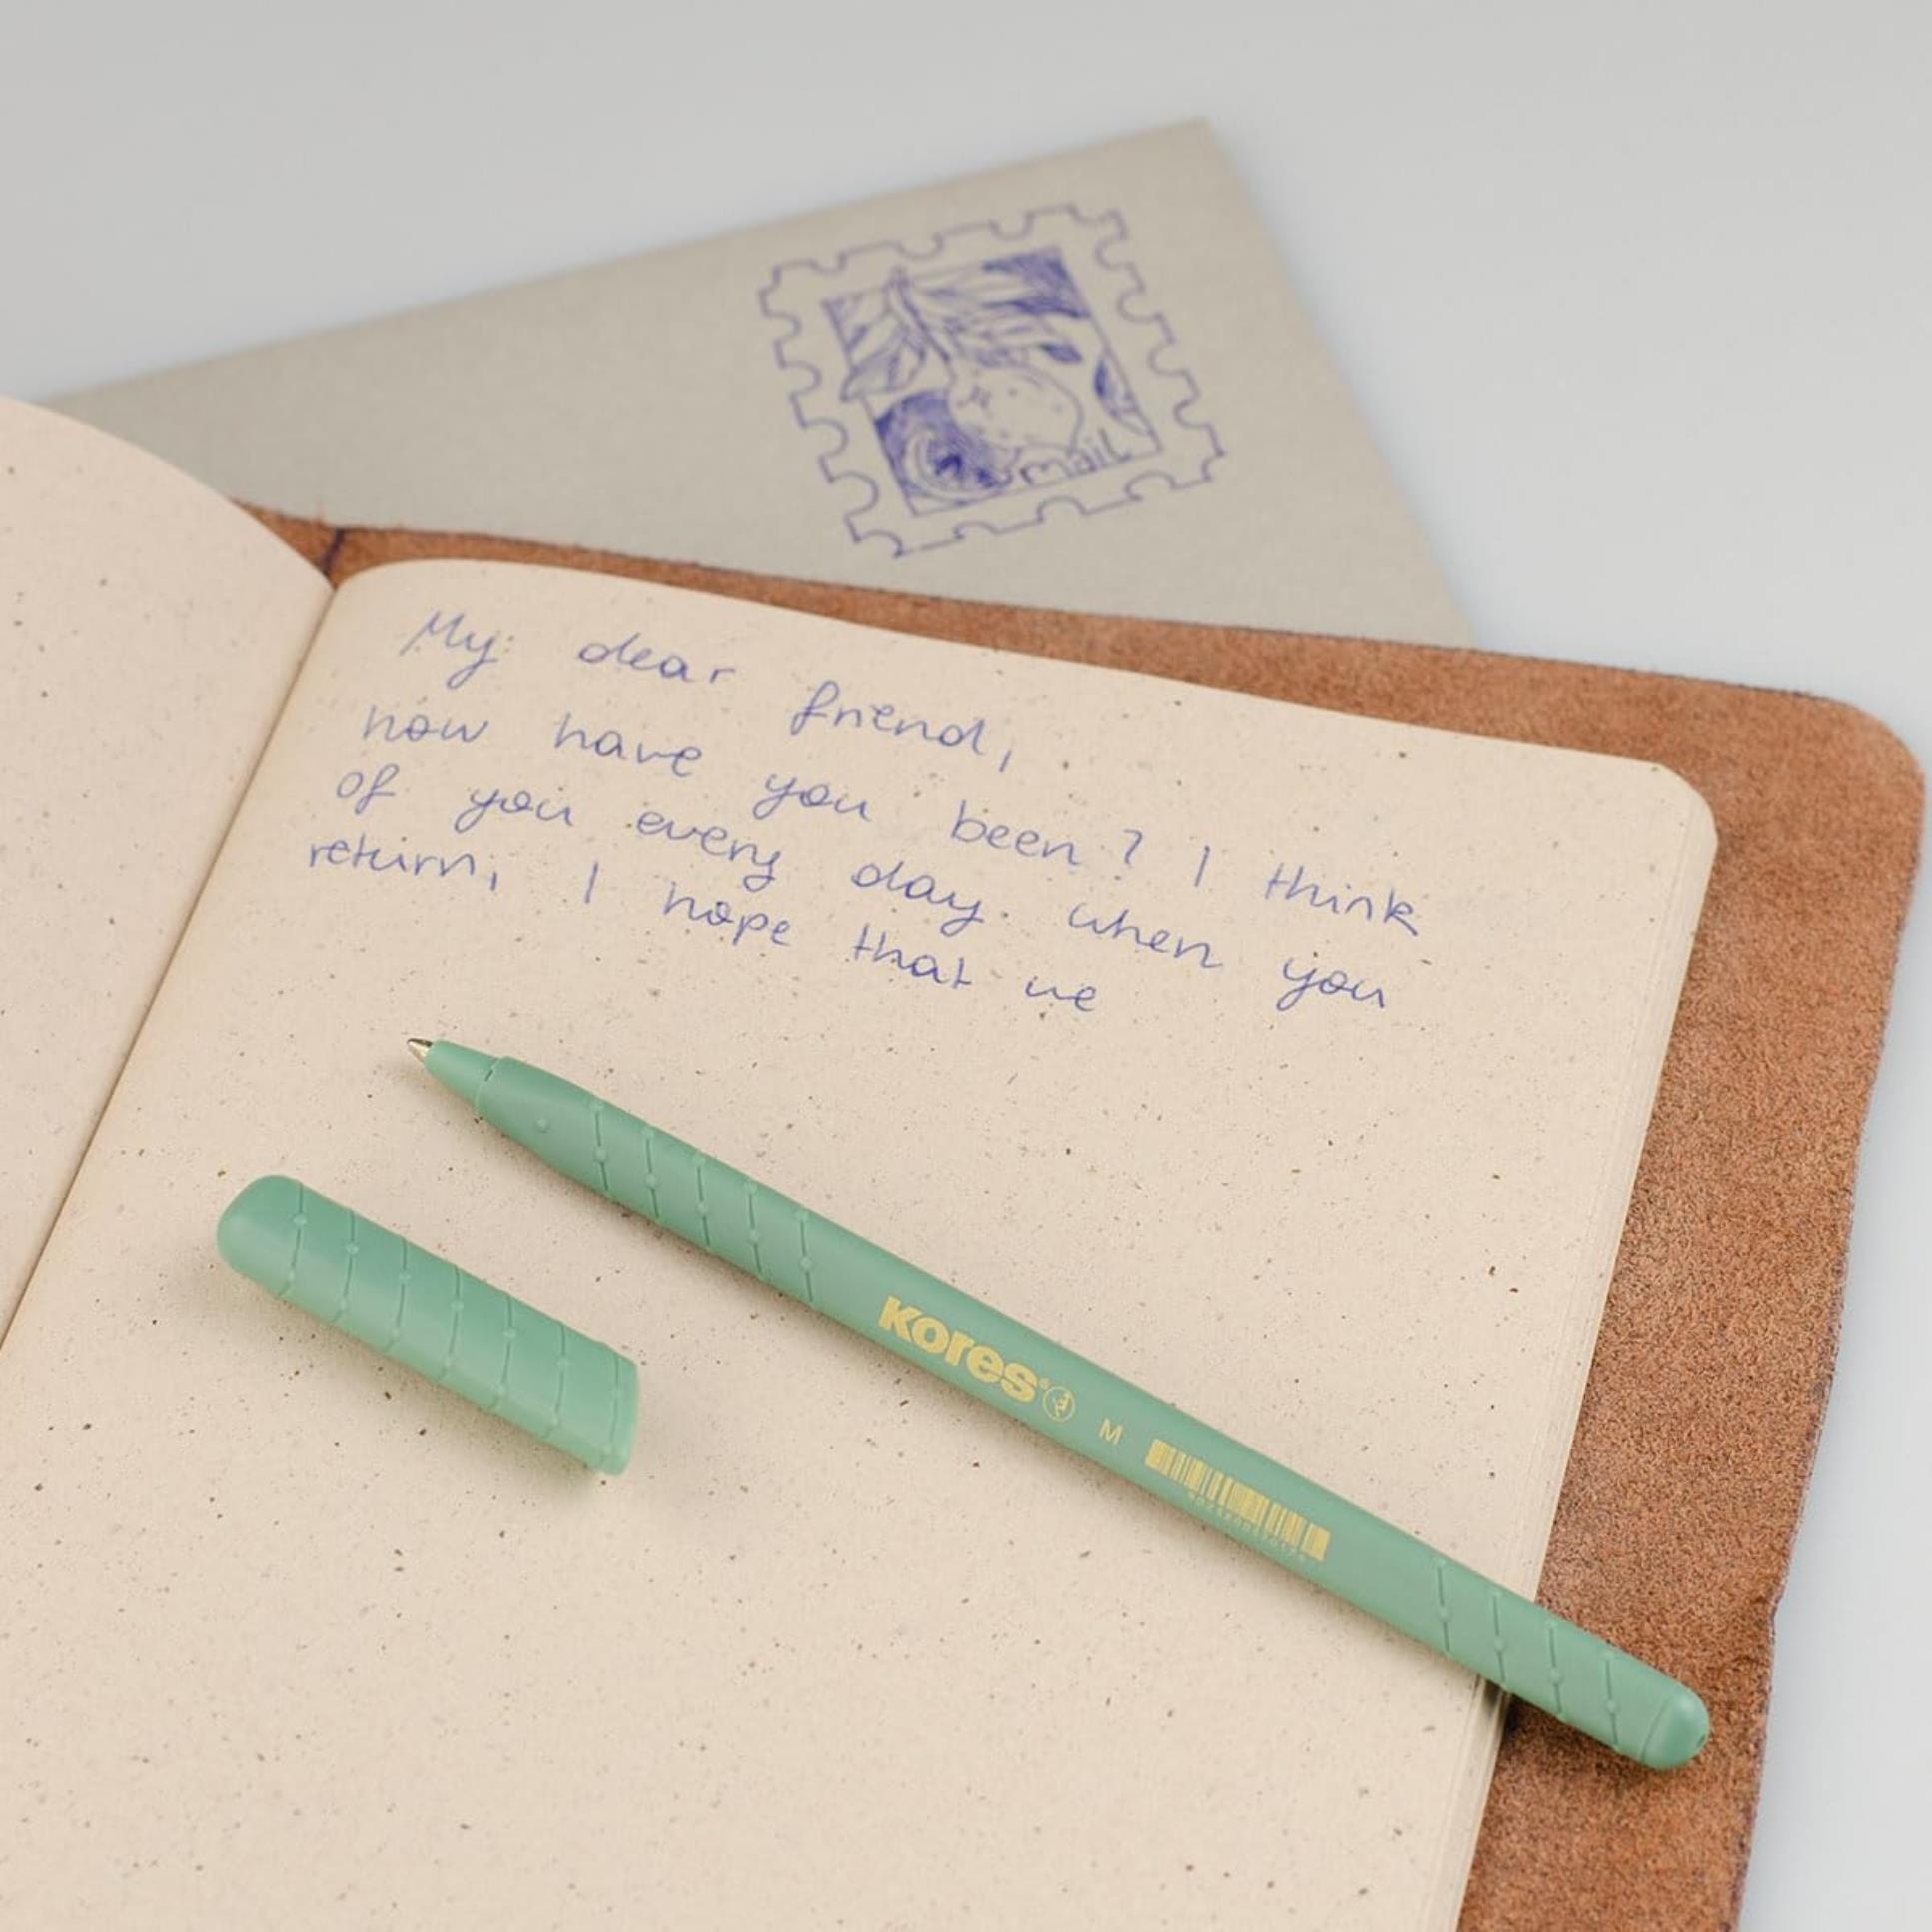 mail
My dear friend,
how have you been? I think
of you every day. when you
return, I hope that we
Kores®
M